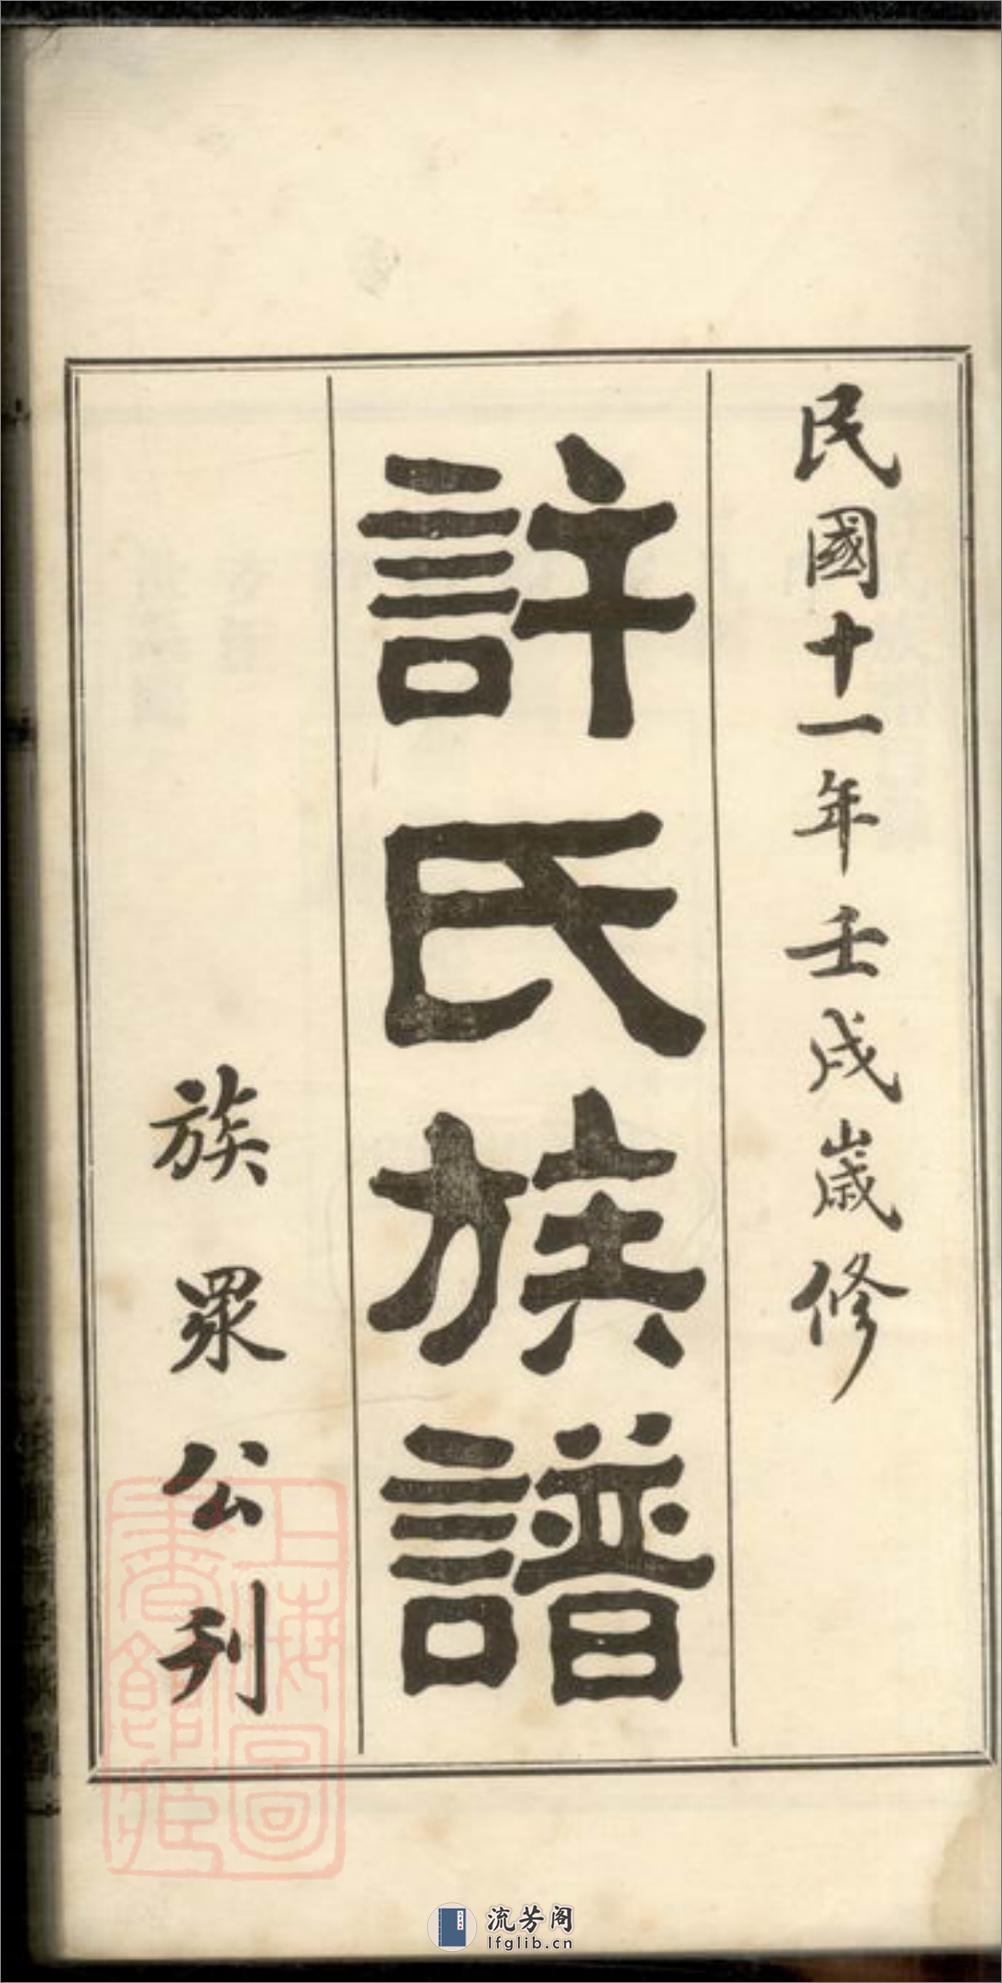 民國十一年壬戌歲修
許氏族譜
族眾公刊
上海圖
書館藏
流芳阁
lfglib.cn